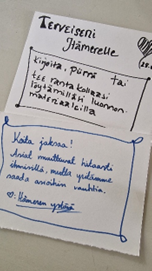 Terveiseni
Itämerelle
Kirjoita, piirrä tai
tee rantakollaasi
löytämilläsi luonnon-
materiaaleilla
Koita jaksaa!
Asiat muuttuvat hitaasti
ihmisillä, mutta yritämme
saada asioihin vauhtia.
♡: Itämeren ystävä